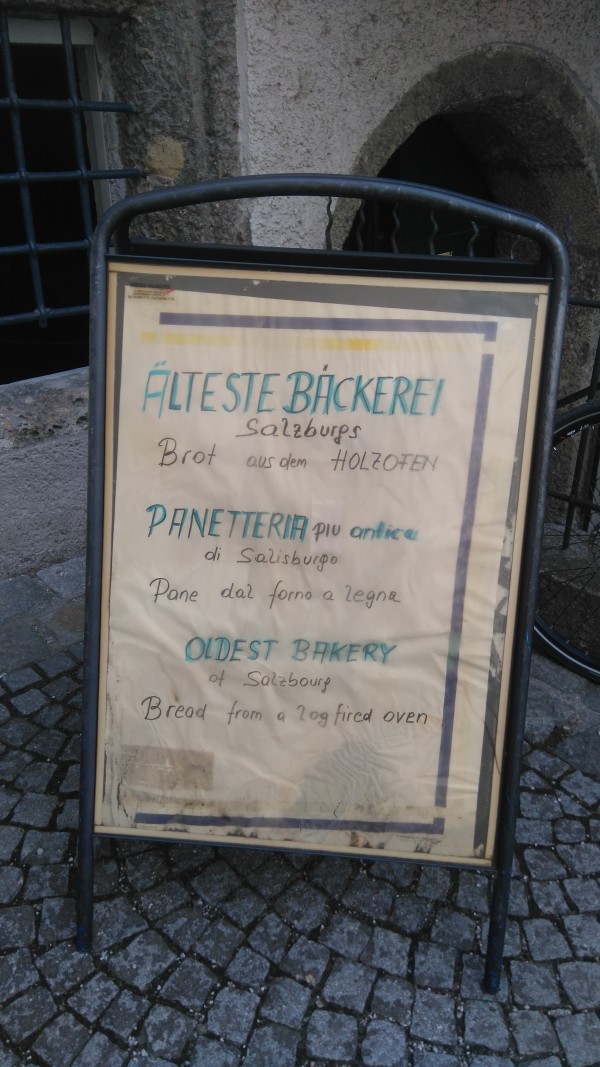 ÄLTESTE BÄCKEREI
Salzburgs
Brot aus dem HOLZOFEN
PANETTERIA piu antica
di Salisburgo
Pane dal forno a legna
OLDEST BAKERY
of Salzbourg
Bread from a log fired oven